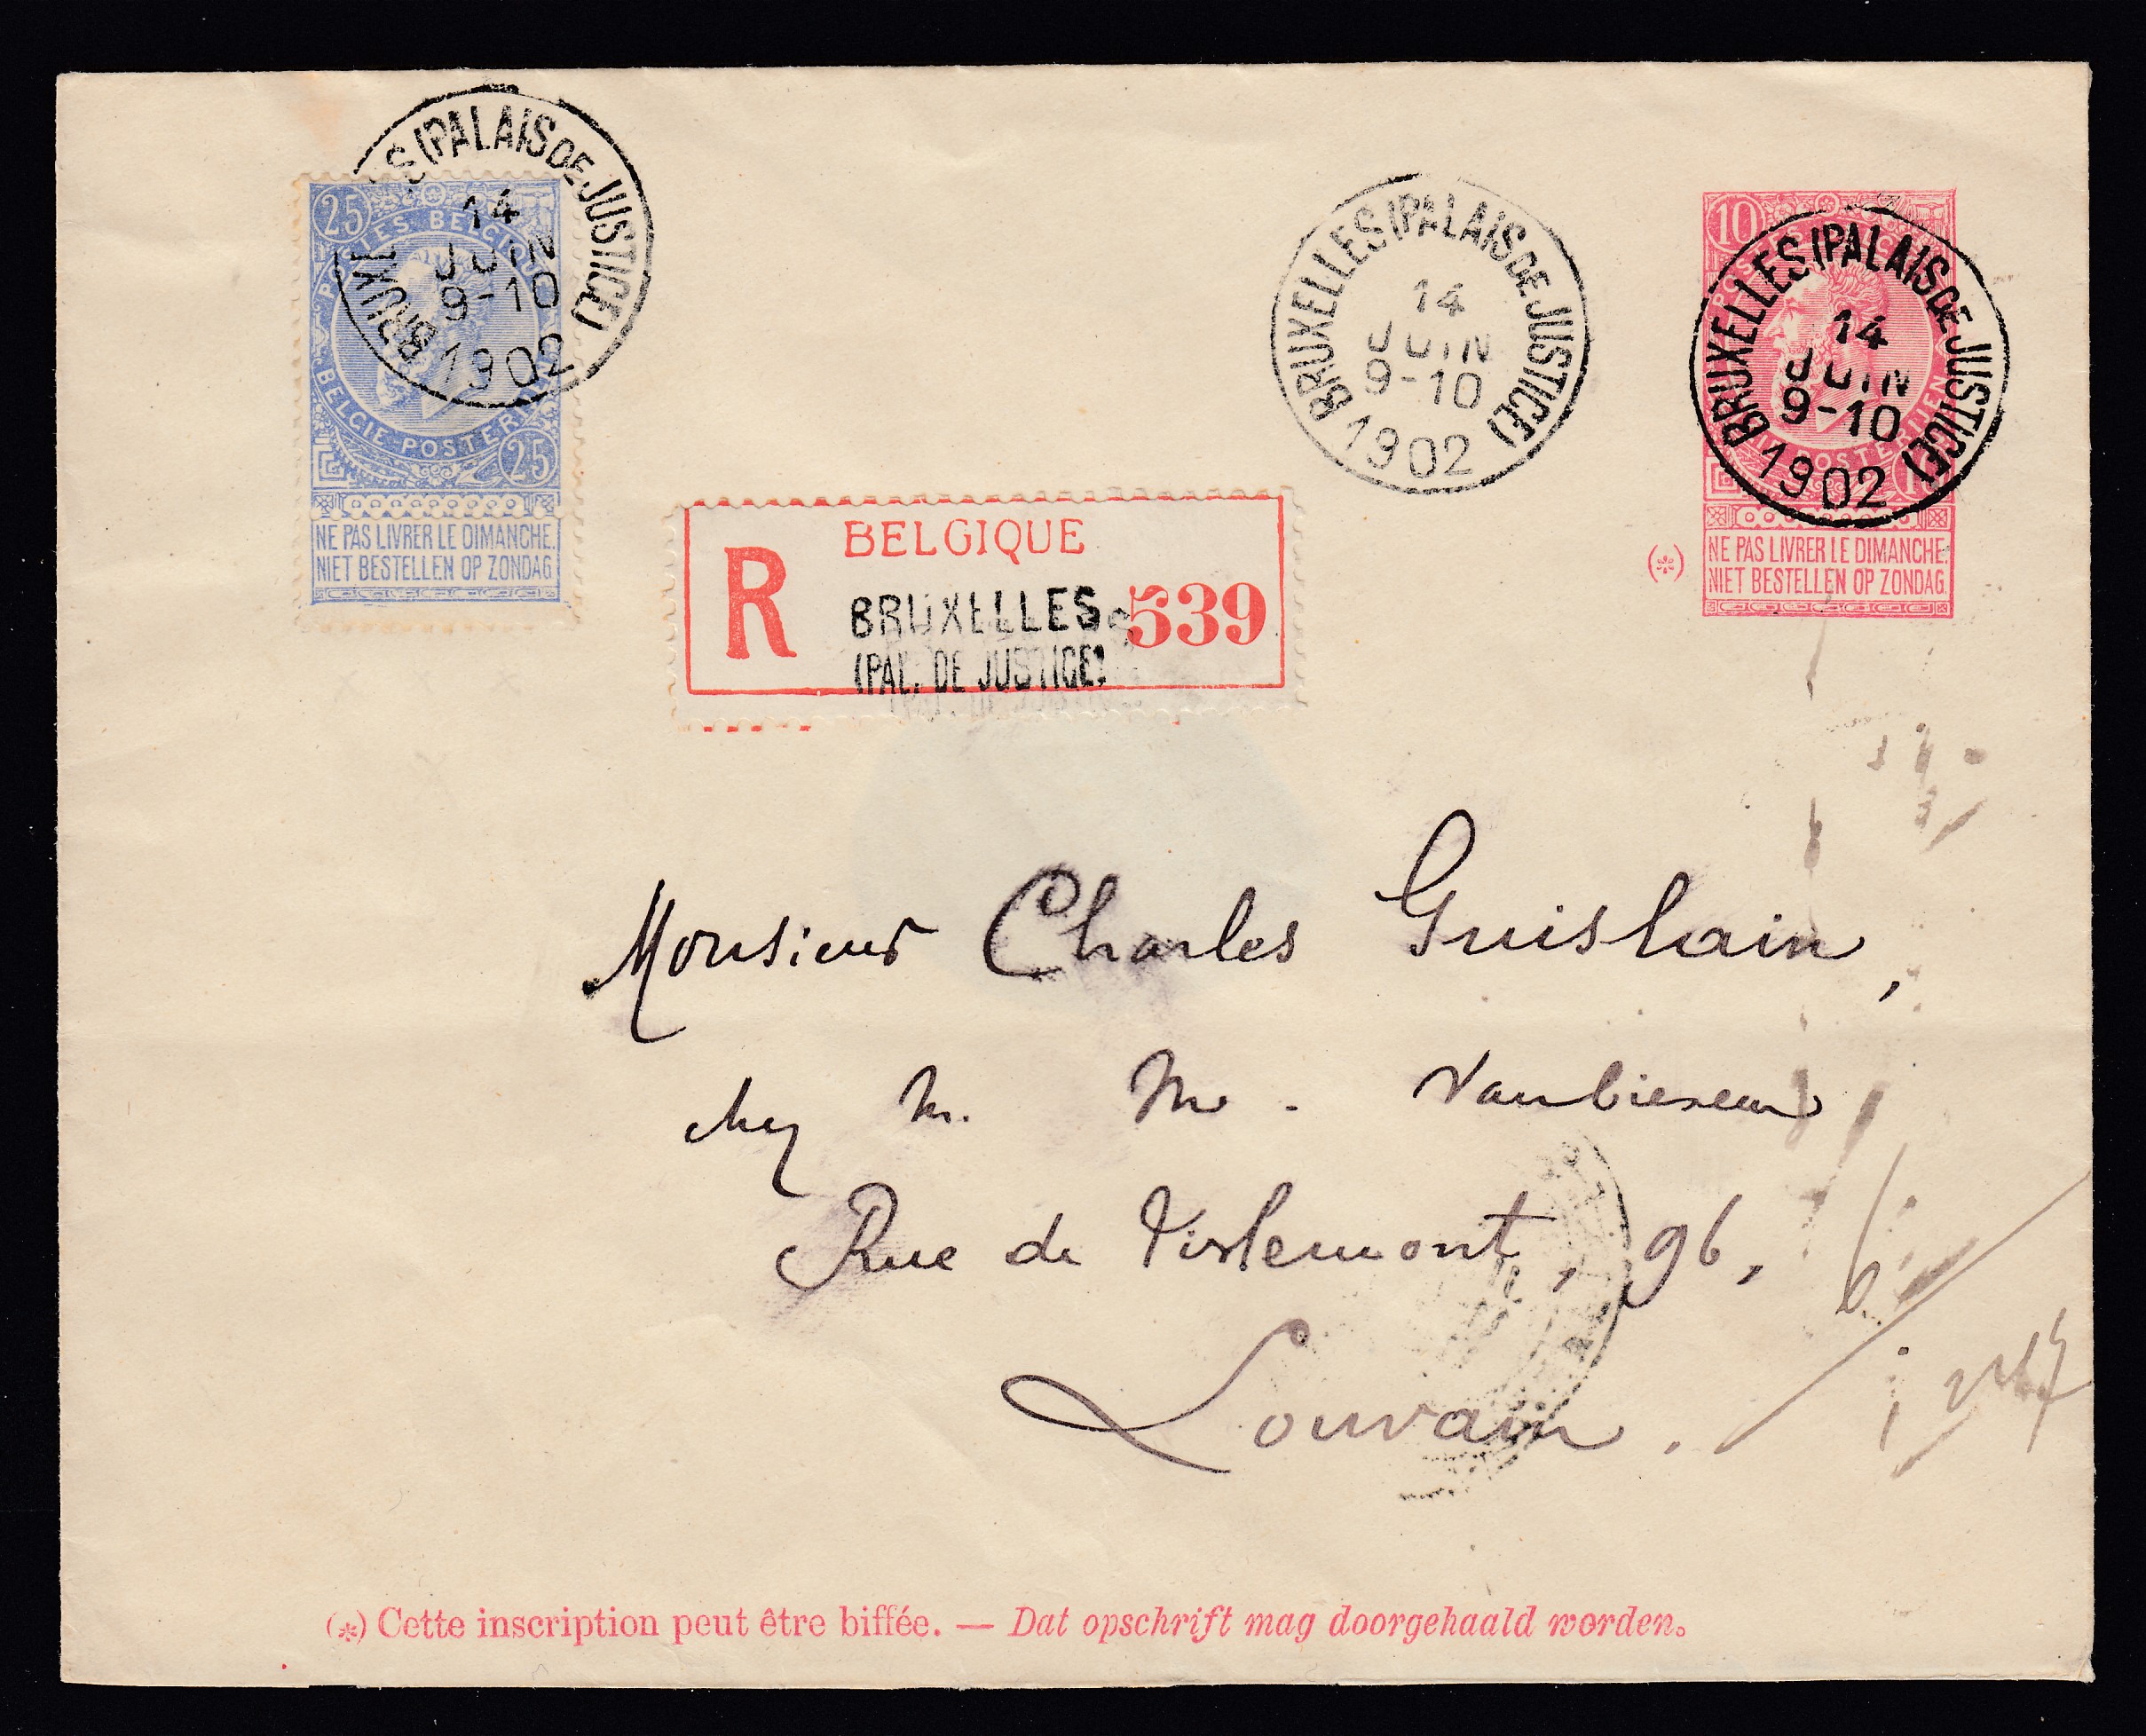 BRUXELLES (PALAIS DE JUSTICE)
14
JUIN
9-10
1902
25
POSTES BELGIQUE
BELGIE POSTERIJEN
25
NE PAS LIVRER LE DIMANCHE.
NIET BESTELLEN OP ZONDAG
BRUXELLES (PALAIS DE JUSTICE)
14
JUIN
9-10
1902
10
BRUXELLES (PALAIS DE JUSTICE)
14
JUIN
9-10
1902
(*)
NE PAS LIVRER LE DIMANCHE.
NIET BESTELLEN OP ZONDAG.
BELGIQUE
R
BRUXELLES
539
(PAL. DE JUSTICE)
Monsieur Charles Guislain,
chez M. M. Vanbiesem
Rue de Tirlemont, 96,
Louvain.
(*) Cette inscription peut être biffée. — Dat opschrift mag doorgehaald worden.